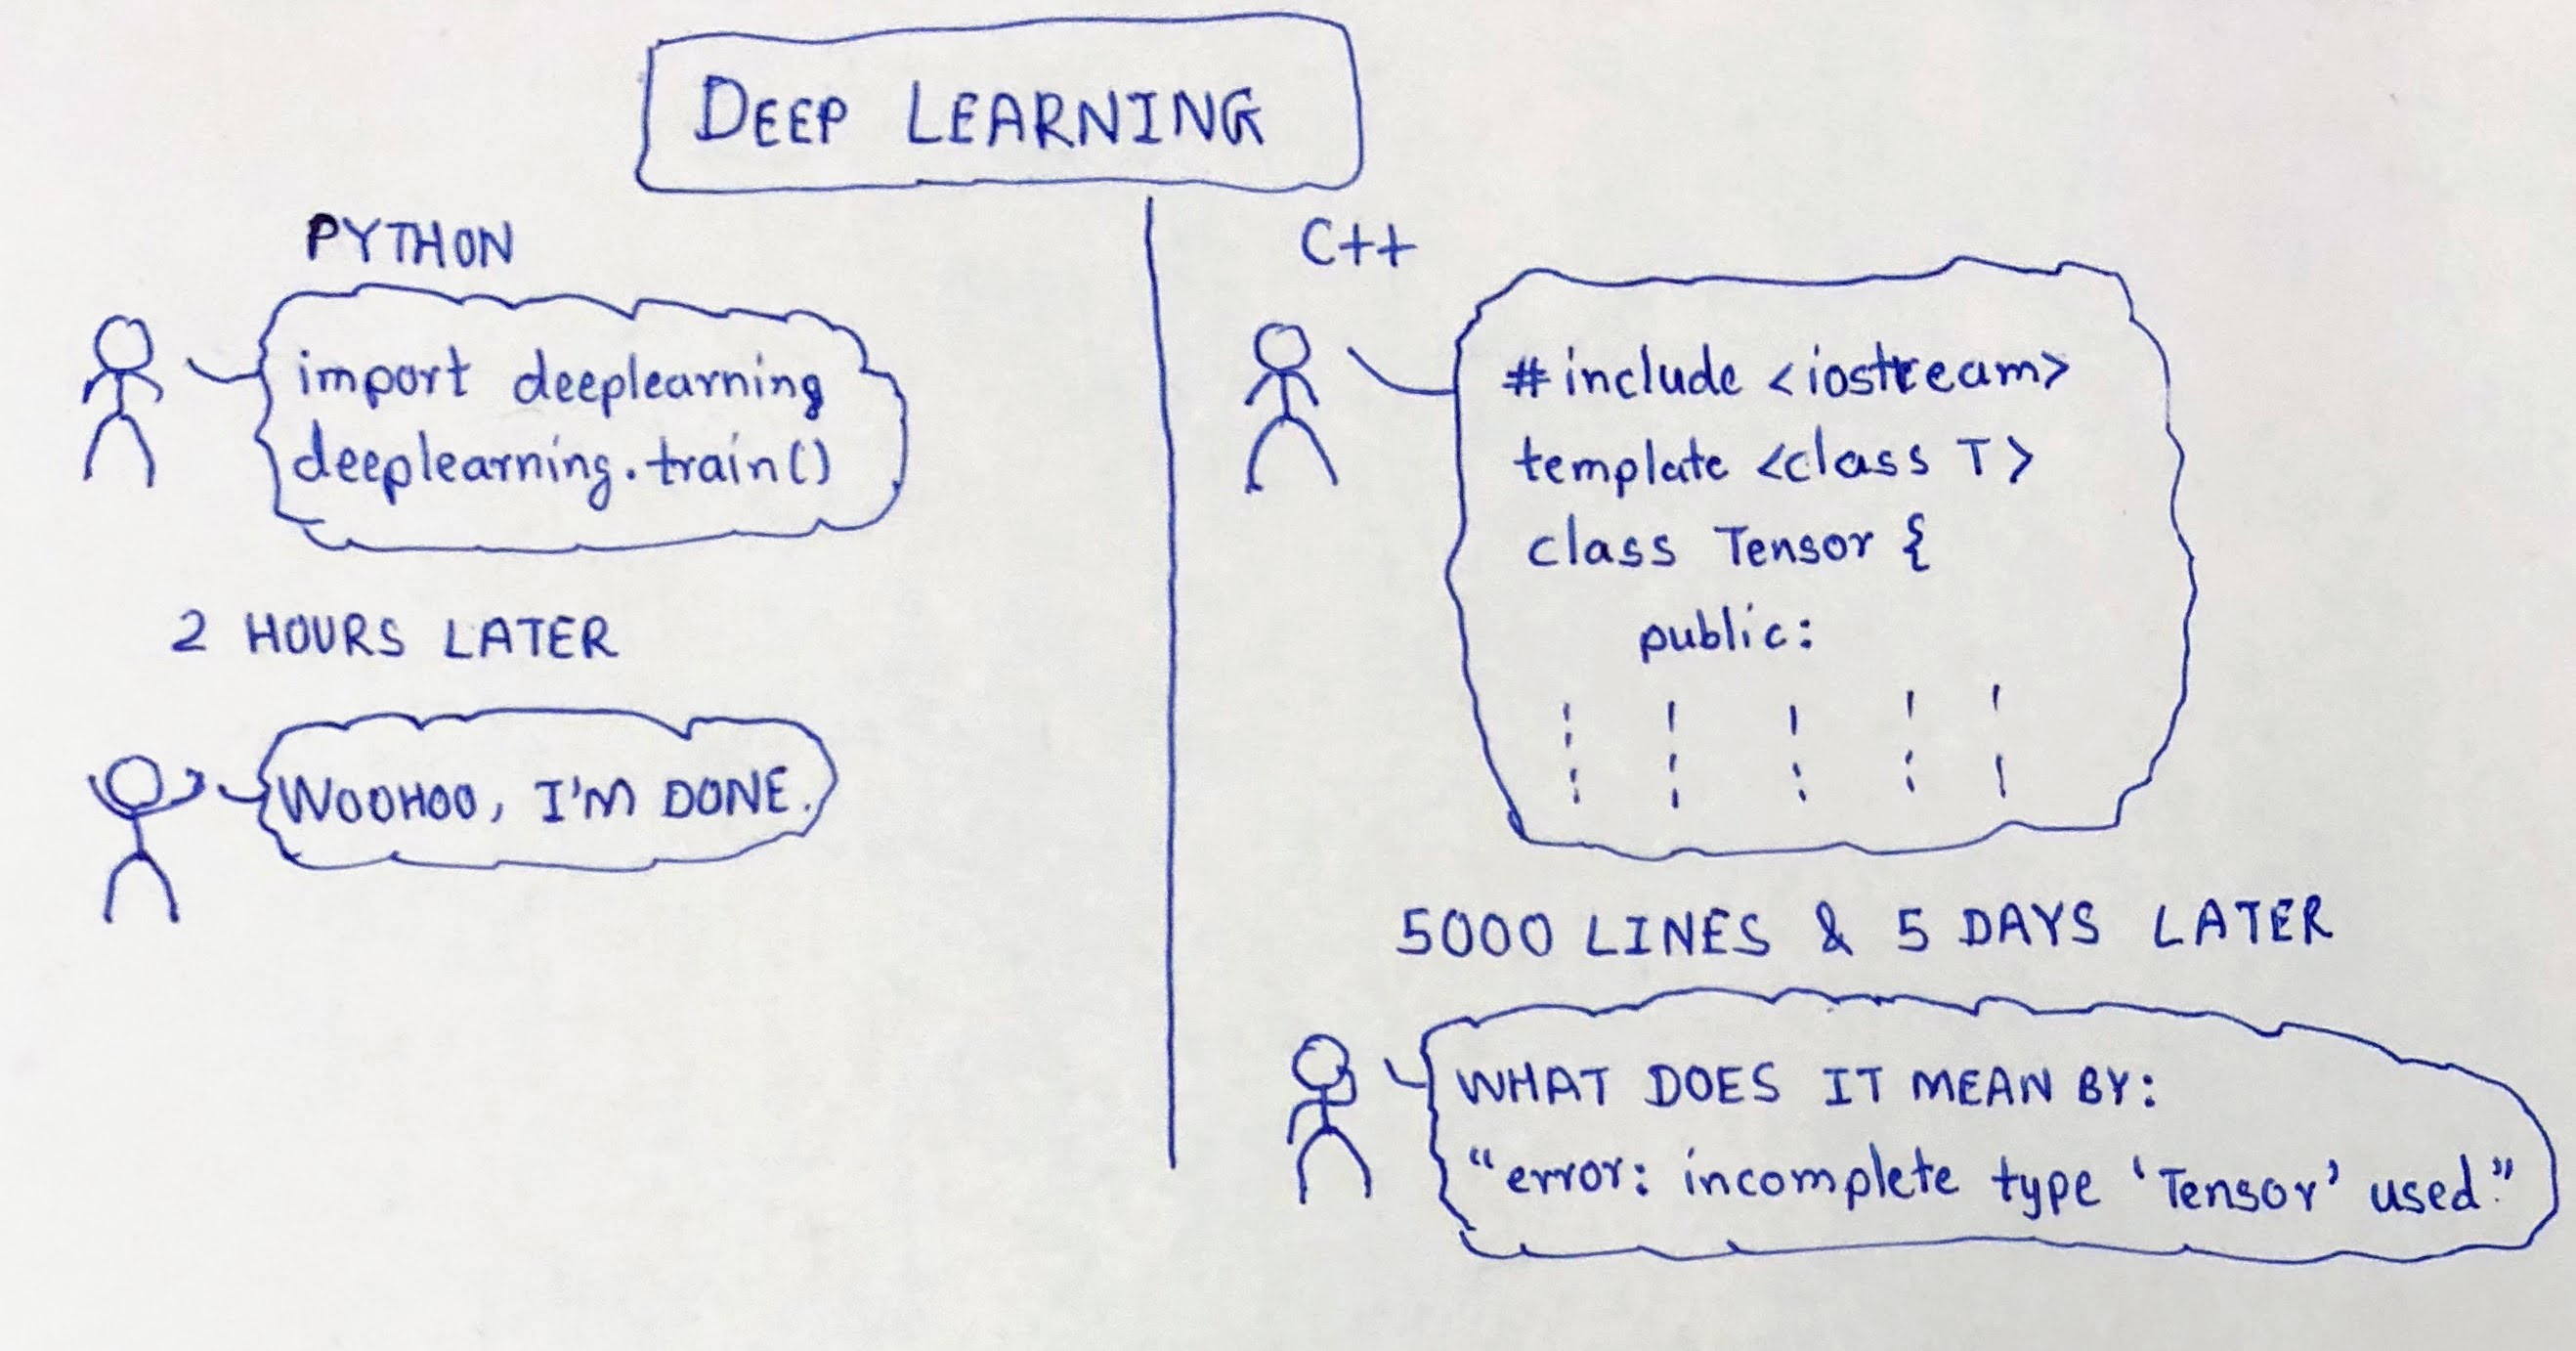 DEEP LEARNING
PYTHON
import deeplearning
deeplearning.train()
2 HOURS LATER
WOOHOO, I'M DONE.
C++
#include <iostream>
template <class T>
class Tensor {
public:
5000 LINES & 5 DAYS LATER
WHAT DOES IT MEAN BY:
"error: incomplete type 'Tensor' used."